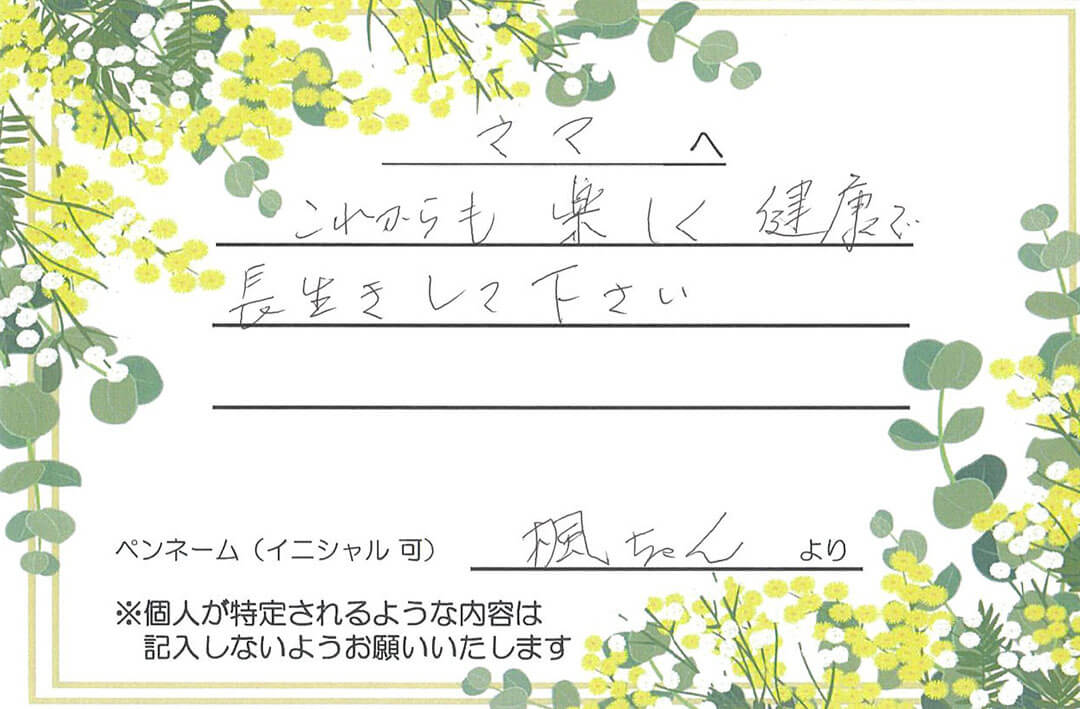 ママ へ
これからも 楽しく 健康で
長生きして下さい
ペンネーム（イニシャル 可） 楓ちゃん より
※個人が特定されるような内容は
記入しないようお願いいたします